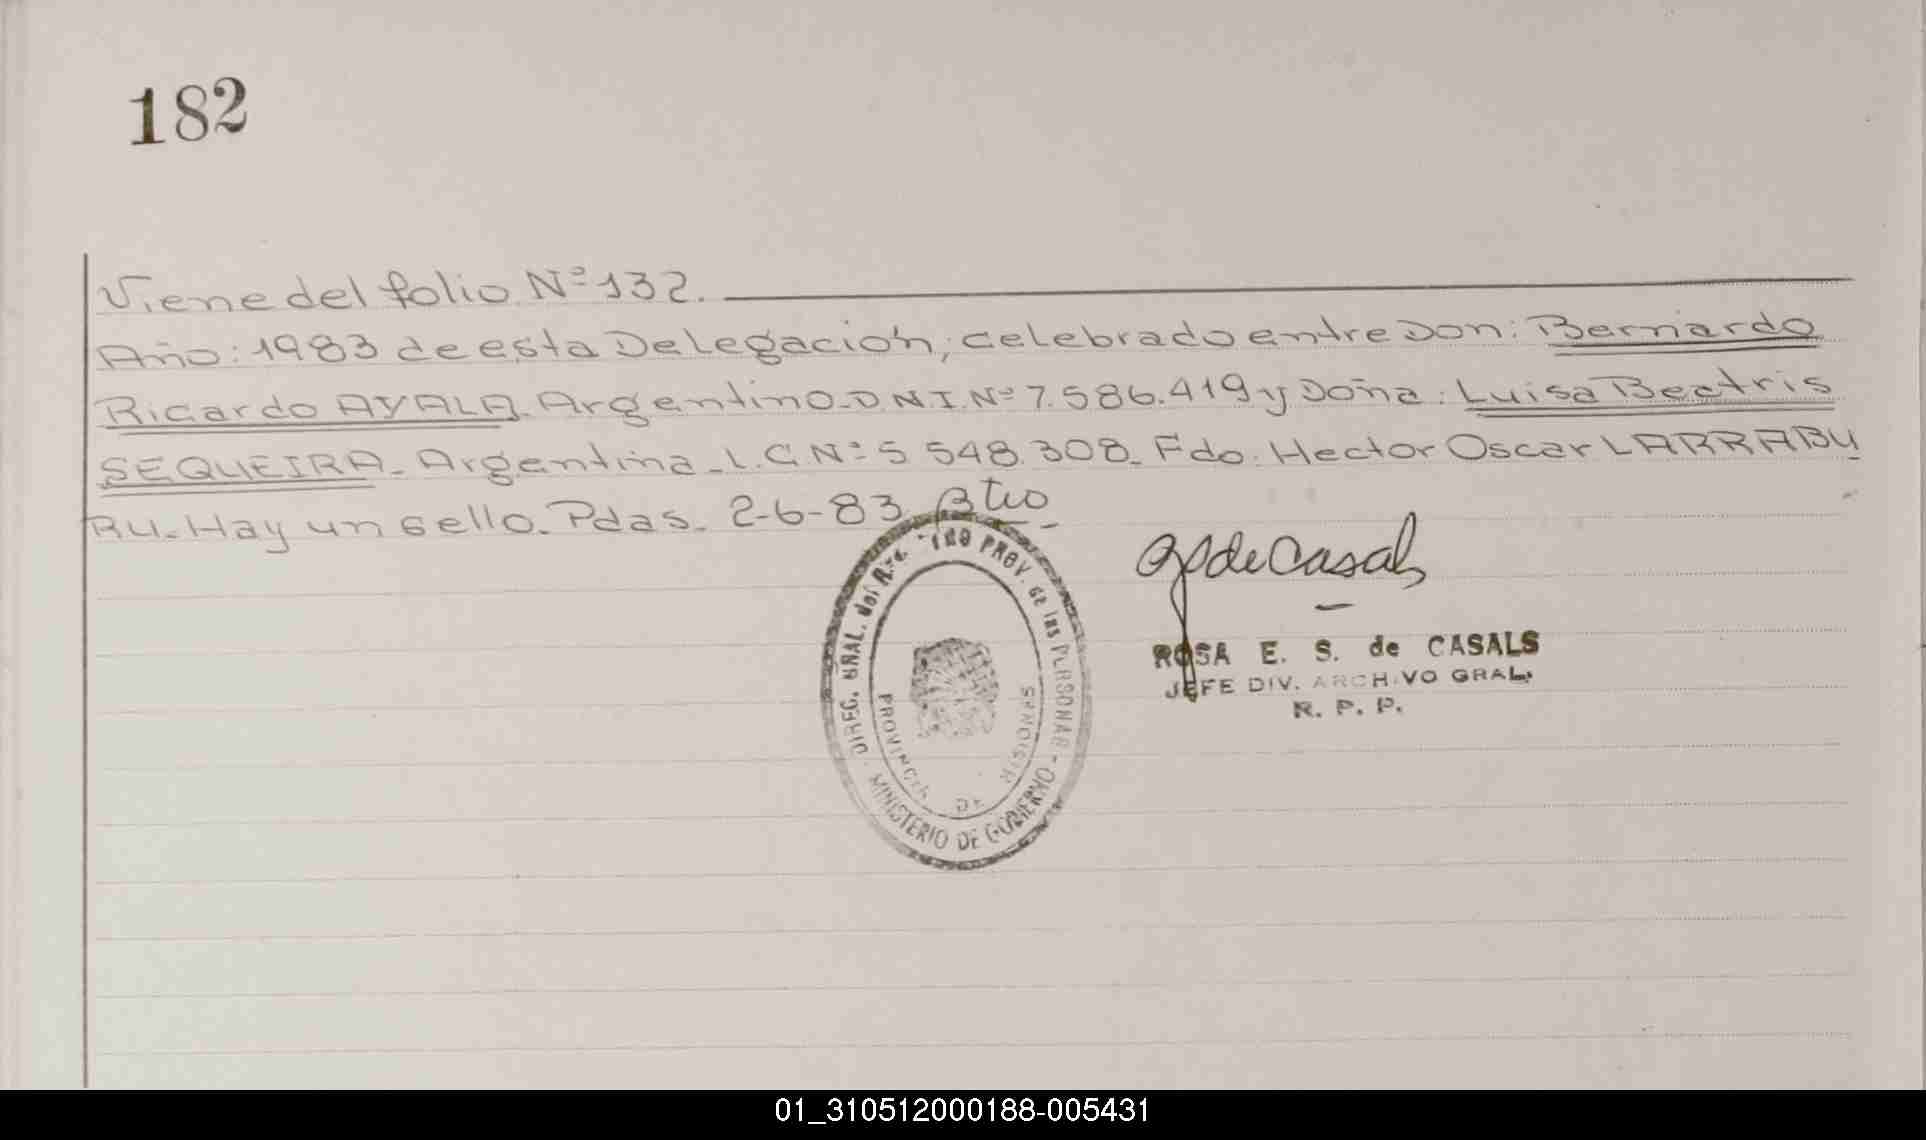 182
Viene del folio Nº 132.
Año: 1983 de esta Delegación; celebrado entre Don: Bernardo
Ricardo AYALA. Argentino. D.N.I. Nº 7.586.419 y Doña: Luisa Beatris
SEQUEIRA. Argentina. L.C. Nº 5 548.308. Fdo. Hector Oscar LARRABU
RU. Hay un sello. Pdas. 2-6-83
DIREC. GRAL. del PROV. de las PERSONAS - MINISTERIO DE GOBIERNO -
PROVINCIA DE MISIONES
de Casals
ROSA E. S. de CASALS
JEFE DIV. ARCHIVO GRAL.
R. P. P.
01_310512000188-005431